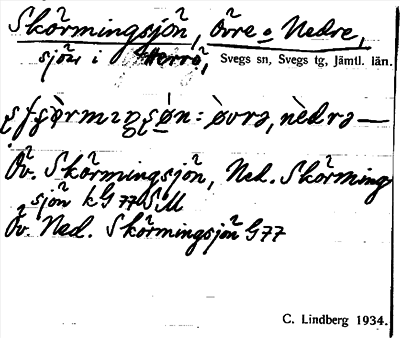 Skörmingsjön, Övre o Nedre,
sjöar i Herrö, Svegs sn, Svegs tg, Jämtl. län.
øvrə, nèdrə —
Öv. Skörmingsjön, Ned. Skörming
sjön kG 77 SM
Öv. Ned. Skörmingsjön G77
C. Lindberg 1934.